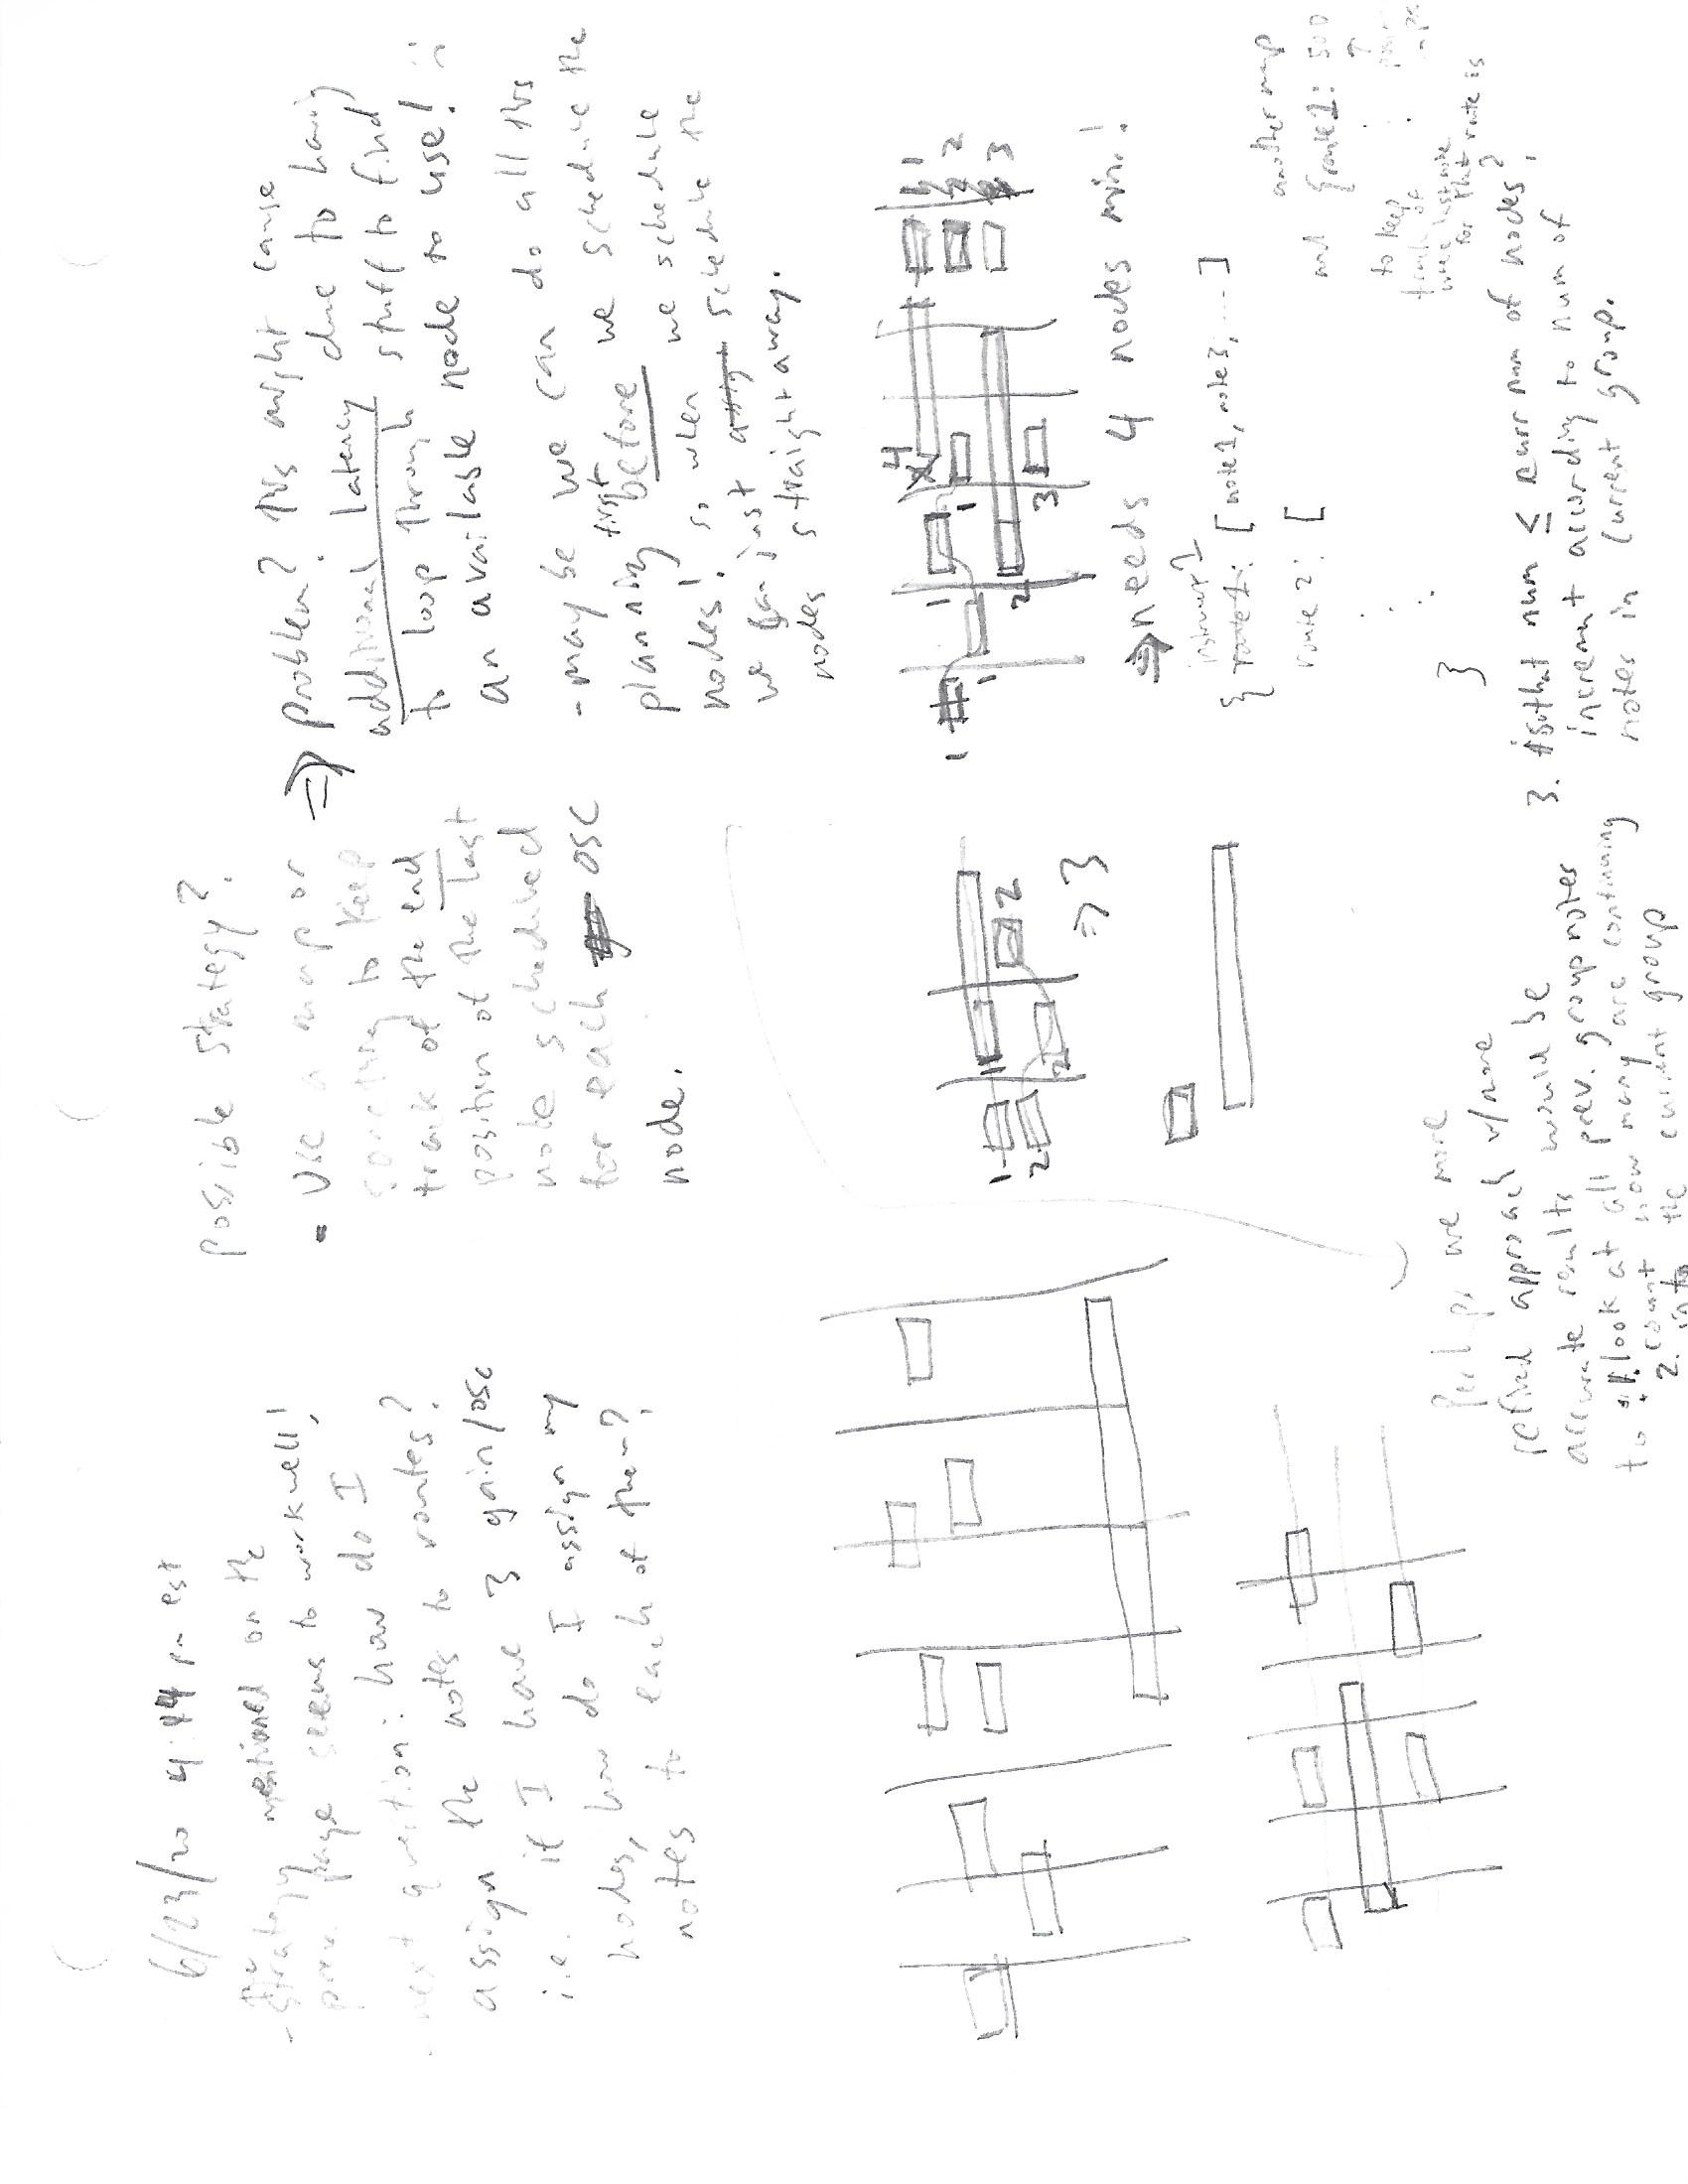 6/23/20 4:44 pm est
the
- strategy mentioned on the
prev. page seems to work well!
- next question: how do I
assign the notes to routes?
i.e. if I have 3 gain/osc
nodes, how do I assign my
notes to each of them?
possible strategy?
- Use a map or
something to keep
track of the end
position of the last
note scheduled
for each osc
node.
⇒ problem? this might cause
additional latency due to having
to loop through stuff to find
an available node to use! :(
- maybe we can do all this
planning first before we schedule the
nodes! so when we schedule
we can just schedule the
nodes straight away.
1 1 2
2 2
⇒ 3
1 1 1 1 4 1
2 2
2 3 3
⇒ needs 4 nodes min.!
instrument 1
{ route 1: [ note 1, note 3, ... ]
route 2: [
}
another map
and {route 1: 500
to keep
track of
where last note
for that route is
Perhaps we more
refined approach w/more
accurate results would be
to : 1. look at all prev. group notes
2. count how many are continuing
into the current group
3. is that num ≤ curr num of nodes?
increment according to num of
notes in current group.